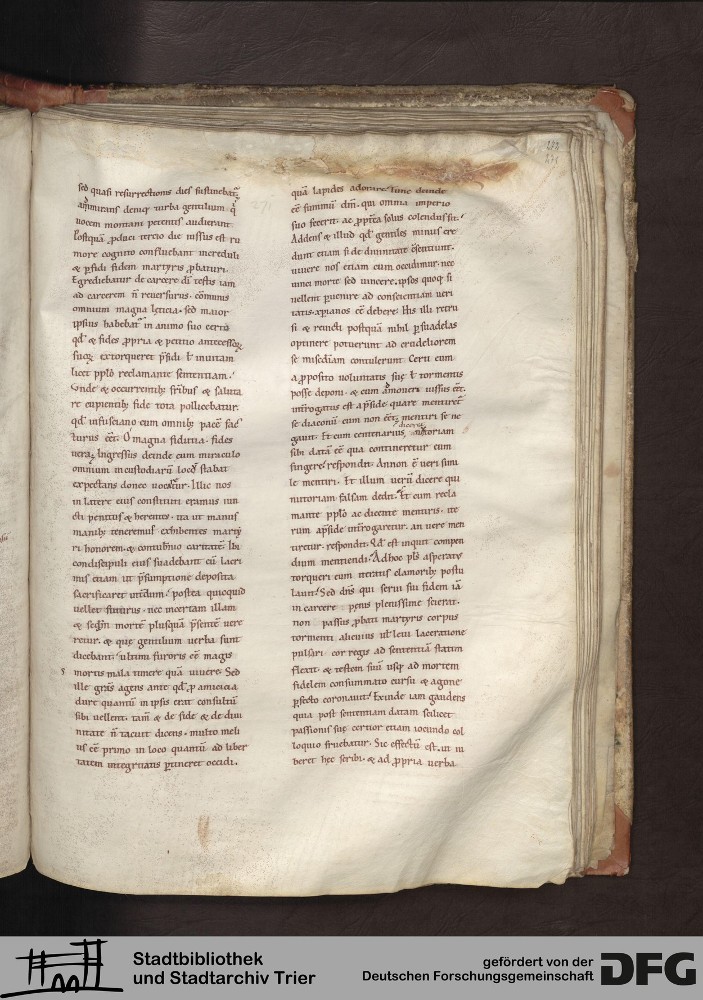 sed quasi resurrectionis dies sustinebat̃
am̃mirans deniq; turba gentilium q̃
uocem montani petentis audierant
Postquã ꝓduci tercio die iussus est ru
more cognito confluebant increduli
& ꝑfidi fidem martyris ꝓbaturi.
Egrediebatur de carcere dĩ testis iam
ad carcerem ñ reuersurus. cõmunis
omnium magna leticia. sed maior
ipsius habebat̃ in animo suo certo
qđ & fides ꝓpria & petitio antecessoꝝ
suoꝝ extorqueret ꝑsidi ł inuitam
licet pplo reclamante sententiam.
Vnde & occurrentib; fribus & saluta
re cupientib; fide tota pollicebatur.
qđ in fusciano cum omnib; pacẽ fac
turus eẽt. O magna fiducia. fides
ueraꝝ Ingressus deinde cum miraculo
omnium in custodiarũ locũ stabat
expectans donec uocaretur. Illic nos
in latere eius constituti eramus iun
cti penitus & herentes. ita ut manus
manib; teneremus exhibentes marty
ri honorem. & contubnio caritatẽ. Ibi
condiscipuli eius suadebant cũ lacri
mis etiam ut ꝑsumptione deposita
sacrificaret interdum. postea quicquid
uellet futurus. nec mortem illam
& secundam mortẽ plusquã ꝑsentẽ uere
retur. & quę gentilium uerba sunt
dicebant. ultimi furoris eẽ magis
mortis mala timere quã uiuere. Sed
ille grãs agens ante qđ ꝓ amicicia
durẽ quantũ in ipsis erat consultũ
sibi uellent. tam̃ & de fide & de diui
nitate ñ tacuit dicens. multo meli
us eẽ primo in loco quantũ ad liber
tatem integritatis ꝑtineret occidi.
quã lapides adorare. tunc deinde
eẽ summũ dm̃. qui omnia imperio
suo fecerit. ac ꝓpt̃ea solus colendus sit.
Addens & illud qđ gentiles minus cre
dunt etiam si de diuinitate c̃sentiunt.
uiuere nos etiam cum occidimur. nec
uinci morte sed uincere. ipsos quoq; si
uellent ꝑuenire ad conscientiam ueri
tatis. xpianos eẽ debere. His illi retu
si & reuicti postquã nihil ꝑsuadelas
optinere potuerunt ad crudeliorem
se misc̃diam contulerunt. Certi eum
a ꝓposito uoluntatis suę ł tormentis
posse deponi. & cum am̃oueri iussus eẽt.
int̃rogatus est a ꝑside quare mentiret̃
se diaconũ cum non eẽt. mentiri se ne
gauit. Et cum centenarius diceret notoriam
sibi datã eẽ qua contineretur eum
fingere. respondit. Annon ẽ ueri simi
le mentiri. Et illum uerũ dicere qui
nutoriam falsam dedit. Et cum recla
mante pplo ac dicente mentiris. ite
rum aꝑside int̃rogaretur. an uere men
tiretur. respondit. Qđ est inquit compen
dium mentiendi. Ad hoc pls asperatꝰ
torqueri eum iteratis clamorib; postu
lauit. Sed dñs qui serui sui fidem iã
in carcere pęnis plenissime scierat.
non passus ꝓbati martyris corpus
tormenti alicuius uł leui laceratione
pulsari cor regis ad sententiã statim
flexit. & testem suũ usq; ad mortem
fidelem consummato cursu & agone
ꝑfecto coronauit. Exinde iam gaudens
quia post sententiam datam scilicet
passionis suę certior etiam iocundo col
loquio fruebatur. Sic effectũ est. ut iu
beret hęc scribi. & ad ꝓpria uerba
271
Stadtbibliothek
und Stadtarchiv Trier
gefördert von der
Deutschen Forschungsgemeinschaft
DFG